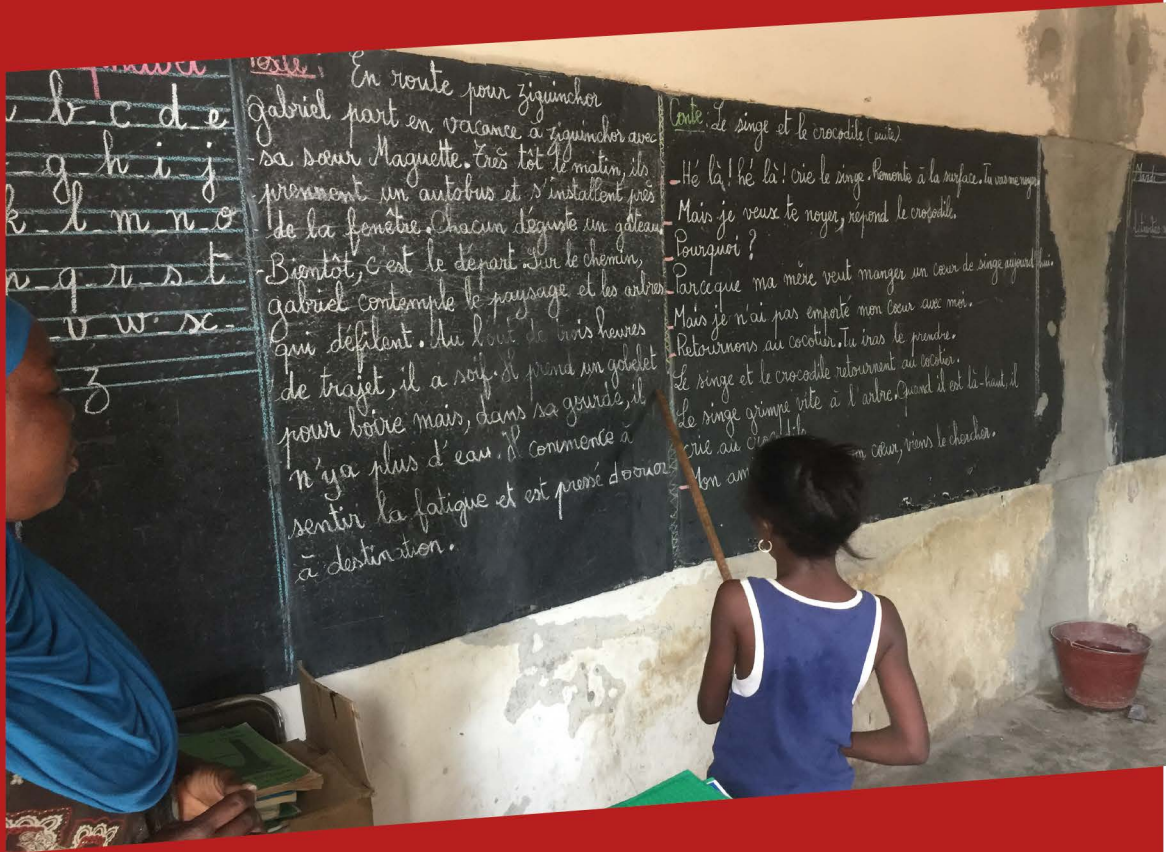 b c d e
g h i j
k l m n o
q r s t
v w x
z
Texte: En route pour Ziguinchor
gabriel part en vacance a ziguinchor avec
sa sœur Maguette. Très tôt le matin, ils
prennent un autobus et s'installent près
de la fenêtre. Chacun déguste un gâteau
Bientôt, c'est le départ. Sur le chemin,
gabriel contemple le paysage et les arbres
qui défilent. Au bout de trois heures
de trajet, il a soif. Il prend un gobelet
pour boire mais, dans sa gourde, il
n'ya plus d'eau. Il commence à
sentir la fatigue et est pressé
à destination.
Conte: Le singe et le crocodile (suite)
- Hé là! hé là! crie le singe. Remonte à la surface. Tu vas me noyer
- Mais je veux te noyer, répond le crocodile.
- Pourquoi?
- Parceque ma mère veut manger un cœur de singe aujourd'hui.
- Mais je n'ai pas emporté mon cœur avec moi.
- Retournons au cocotier. Tu iras le prendre.
Le singe et le crocodile retournent au cocotier.
Le singe grimpe vite à l'arbre. Quand il est là-haut, il
crie au
- Mon cœur, viens le chercher.